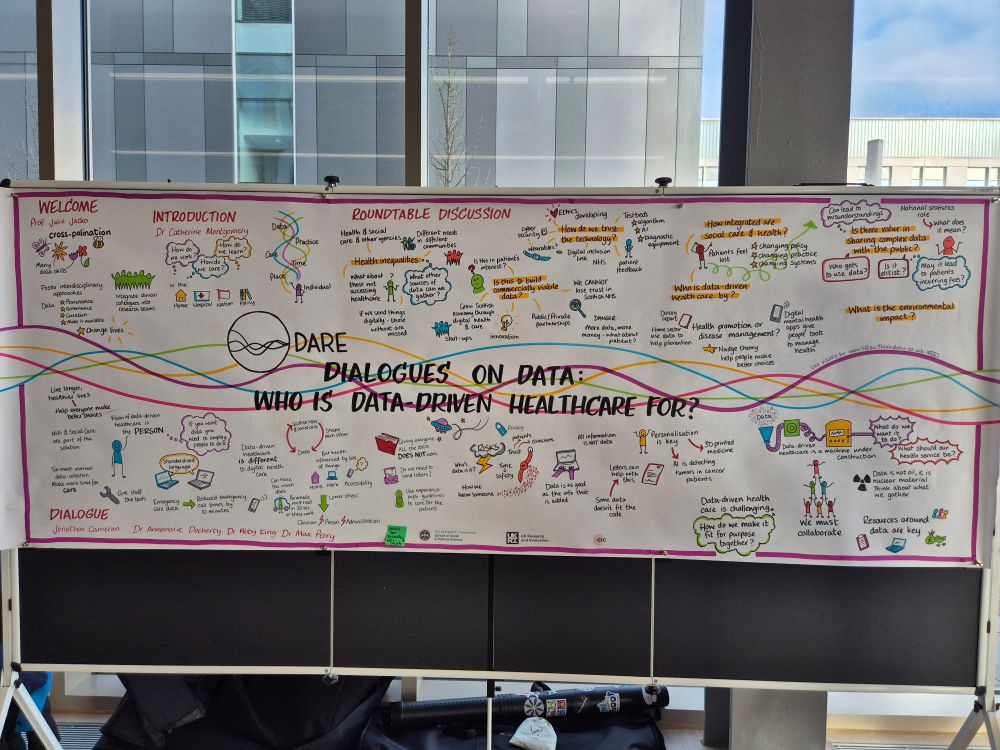 WELCOME
Prof Julie Jacko
cross-pollination
Many
data skills
Foster interdisciplinary
approaches
Data
Provenance
Governance
Curation
Make it available
Integrate clinical
colleagues into
research teams
Change lives
INTRODUCTION
Dr Catherine Montgomery
How do
we work?
How do
we learn?
How do
we care?
In the
Home
Hospital
Nation
Policy
Data
Practice
Care
Time
Place
Individual
ROUNDTABLE DISCUSSION
Health & social
care & other agencies
Different needs
in different
communities
Health inequalities
What about
those not
accessing
healthcare
What other
sources of
data can we
gather?
If we send things
digitally - those
without are
missed
Is this in patient's
interest?
Is this to build
commercially viable
data?
Grow Scottish
economy through
digital health
& care
Start-ups
Innovation
Public/Private
partnerships
We CANNOT
lose trust in
Scottish NHS
DANGER:
More data, more
money - what about
patient?
Ethics
developing
cyber
security
How do we trust
the technology?
wearables?
Digital inclusion
link
NHS
Testbeds
algorithms
AI
Diagnostic
equipment
patient
feedback
How integrated are
social care & health?
Patients feel
loss
changing policy
changing practice
changing systems
Who is data-driven
health care by?
Health promotion or
disease management?
Home sector
use data to
help prevention
Nudge theory
help people make
better choices
Digital
mental health
apps give
people tools
to manage
health
Can lead to
misunderstanding?
National statistics
role
what does
it mean?
Is there value in
sharing complex data
with the public?
Who gets
to use data?
Is it
elitist?
May it lead
to patients
incurring fees?
What is the environmental
impact?
DARE
DIALOGUES ON DATA:
WHO IS DATA-DRIVEN HEALTHCARE FOR?
Live longer,
healthier lives
Help everyone make
better choices
NHS & Social Care
are part of the
solution
Too much manual
data-collection
Make more time for
care
Give staff
the tools
Vision of data-driven
healthcare is
the PERSON
If you want
data you
need to employ
people to do it
Standardised
language
Emergency
care data
Reduced emergency
call times by
10 minutes
Data-driven
healthcare
is different
to digital health
care
Shape
each other
Data
But health
influenced by lots
of things
Home
Work
Accessibility
Can have
too much
data
lower stress
Clinician
Person
Administration
Giving everyone
all the data
DOES NOT work
Do we need to
send letters?
Use experience
with guidelines
to care for the
patient
RISKS?
Privacy
patients
Trust
clinicians
Who's
data is it?
Time &
safety
How we
know someone
Data is as good
as the info that
is added
All information
is NOT data
Letters can
help with
this
Some data
doesn't fit the
code
Personalisation
is key
3D printed
medicine
AI is detecting
tumours in cancer
patients
Data
Data-driven
healthcare is a machine under
construction
Data-driven health
care is challenging.
How do we make it
fit for purpose
together?
We must
collaborate
What do we
want it to
do?
What should our
health service be?
Data is not oil, it is
nuclear material
Think about what
we gather
Resources around
data are key
DIALOGUE
Jonathan Cameron Dr Annemarie Docherty Dr Abby King Dr Max Perry
School of Social
& Political Science
UKRI
UK Research
and Innovation
erc